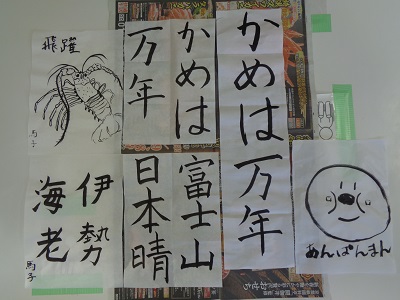 かめは一万年
かめは
万年
飛躍
馬子
富士山
日本晴
伊勢
海老
馬子
あんぱんまん
おせち